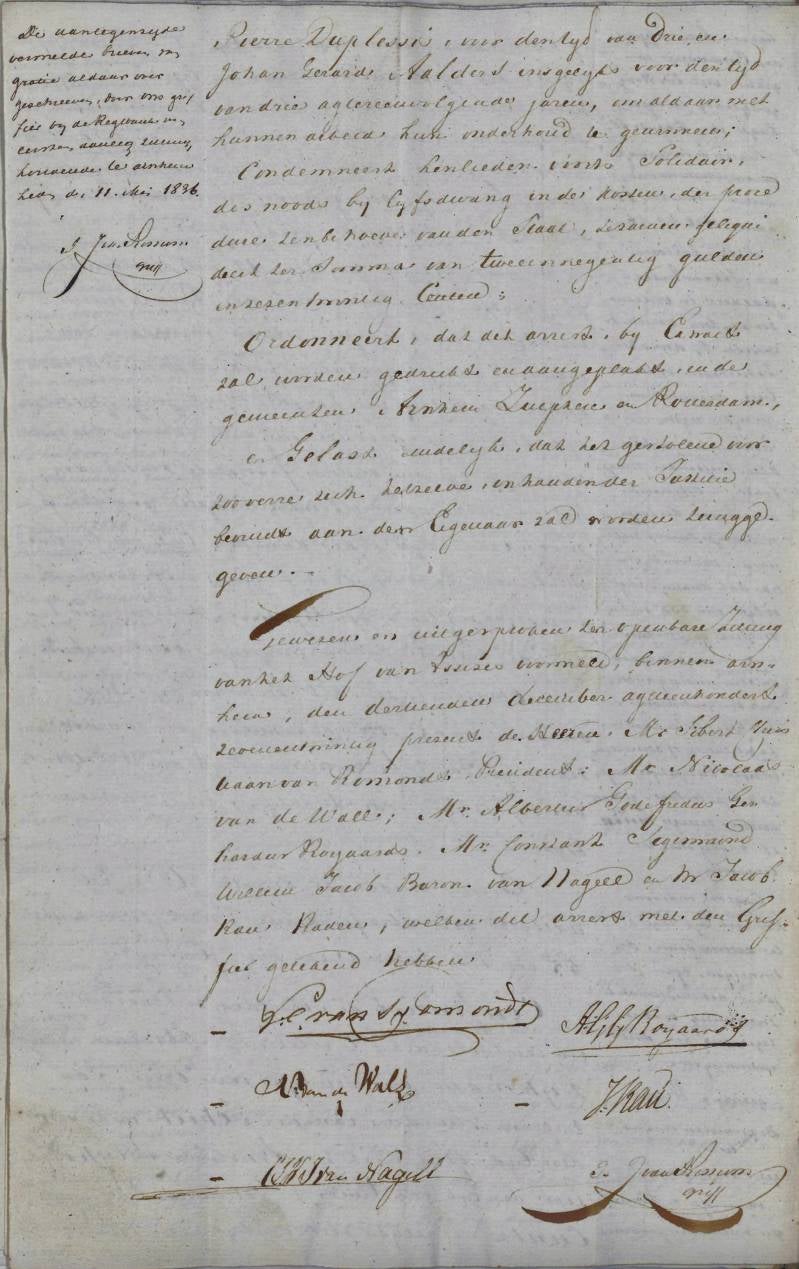 De aantegenzyde
vermelde brieven van
gratie aldaar over
geschreven, door ons grif
fier by de Regtbank van
eersten aanleg zitting
houdende te Arnhem
heden de 11 Mei 1836.
J van Rossum
griff
Pierre Duplessis, voor den tyd van Drie, en
Johan Gerard Aalders insgelyks voor den tyd
van drie agtereenvolgende jaren, om aldaar met
hunnen arbeid hun onderhoud te gewinnen;
Condemneert henlieden voorts Solidair,
des noods by lyfsdwang in de kosten der proce
dure ten behoeve van den Staat, te zamen geliqui
deert ter Somma van tweeennegentig gulden
en zesentwintig Centen;
Ordonneert, dat dit arrest, by Extract
zal worden gedrukt en aangeplakt, in de
gemeenten Arnhem Zutphen en Rotterdam,
en Gelast eindelyk, dat het gestolene voor
zoo verre zich hetzelve, in handen der Justitie
bevindt aan den Eigenaar zal worden terugge-
geven. -
Gewezen en uitgesproken ter openbare Zitting
van het Hof van Assises voormeld, binnen Arn-
hem, den dertienden december agttienhonderd
zevenentwintig present de Heeren Mr. Gisbert Chris
tiaan van Romondt President; Mr. Nicolaas
van de Wall; Mr. Albertus Godefredus Ger
hardus Royaards. Mr. Constant Sigismond
Willem Jacob Baron van Nagell en Mr Jacob
Rau Raden, welken dit arrest met den Grif-
fier getekend hebben.
- G.C. van Romondt
A G G Royaards
- N. van de Wall
- J. Rau.
- C S W J van Nagell
J van Rossum
griff